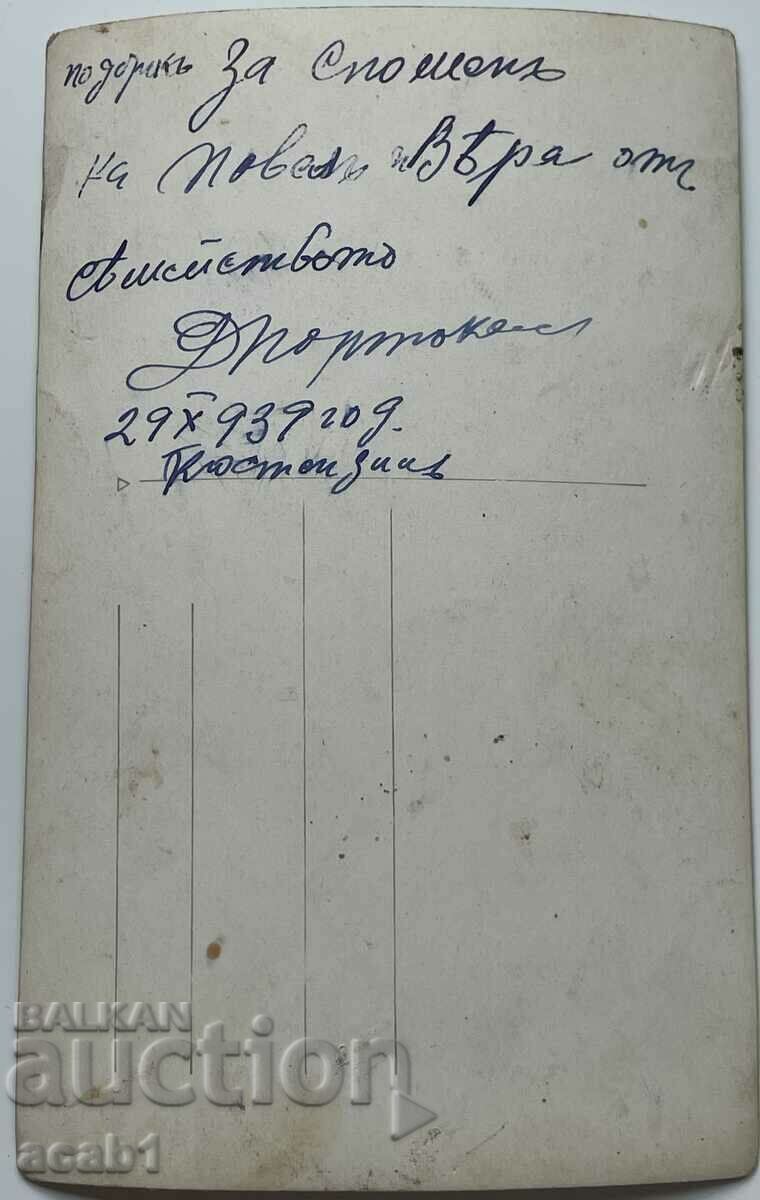 подарък За споменъ
на Повелъ и Вѣра отъ
сѣмейството
ДПортокал
29 X 939 год.
Кюстендилъ
BALKAN
auction
acab1